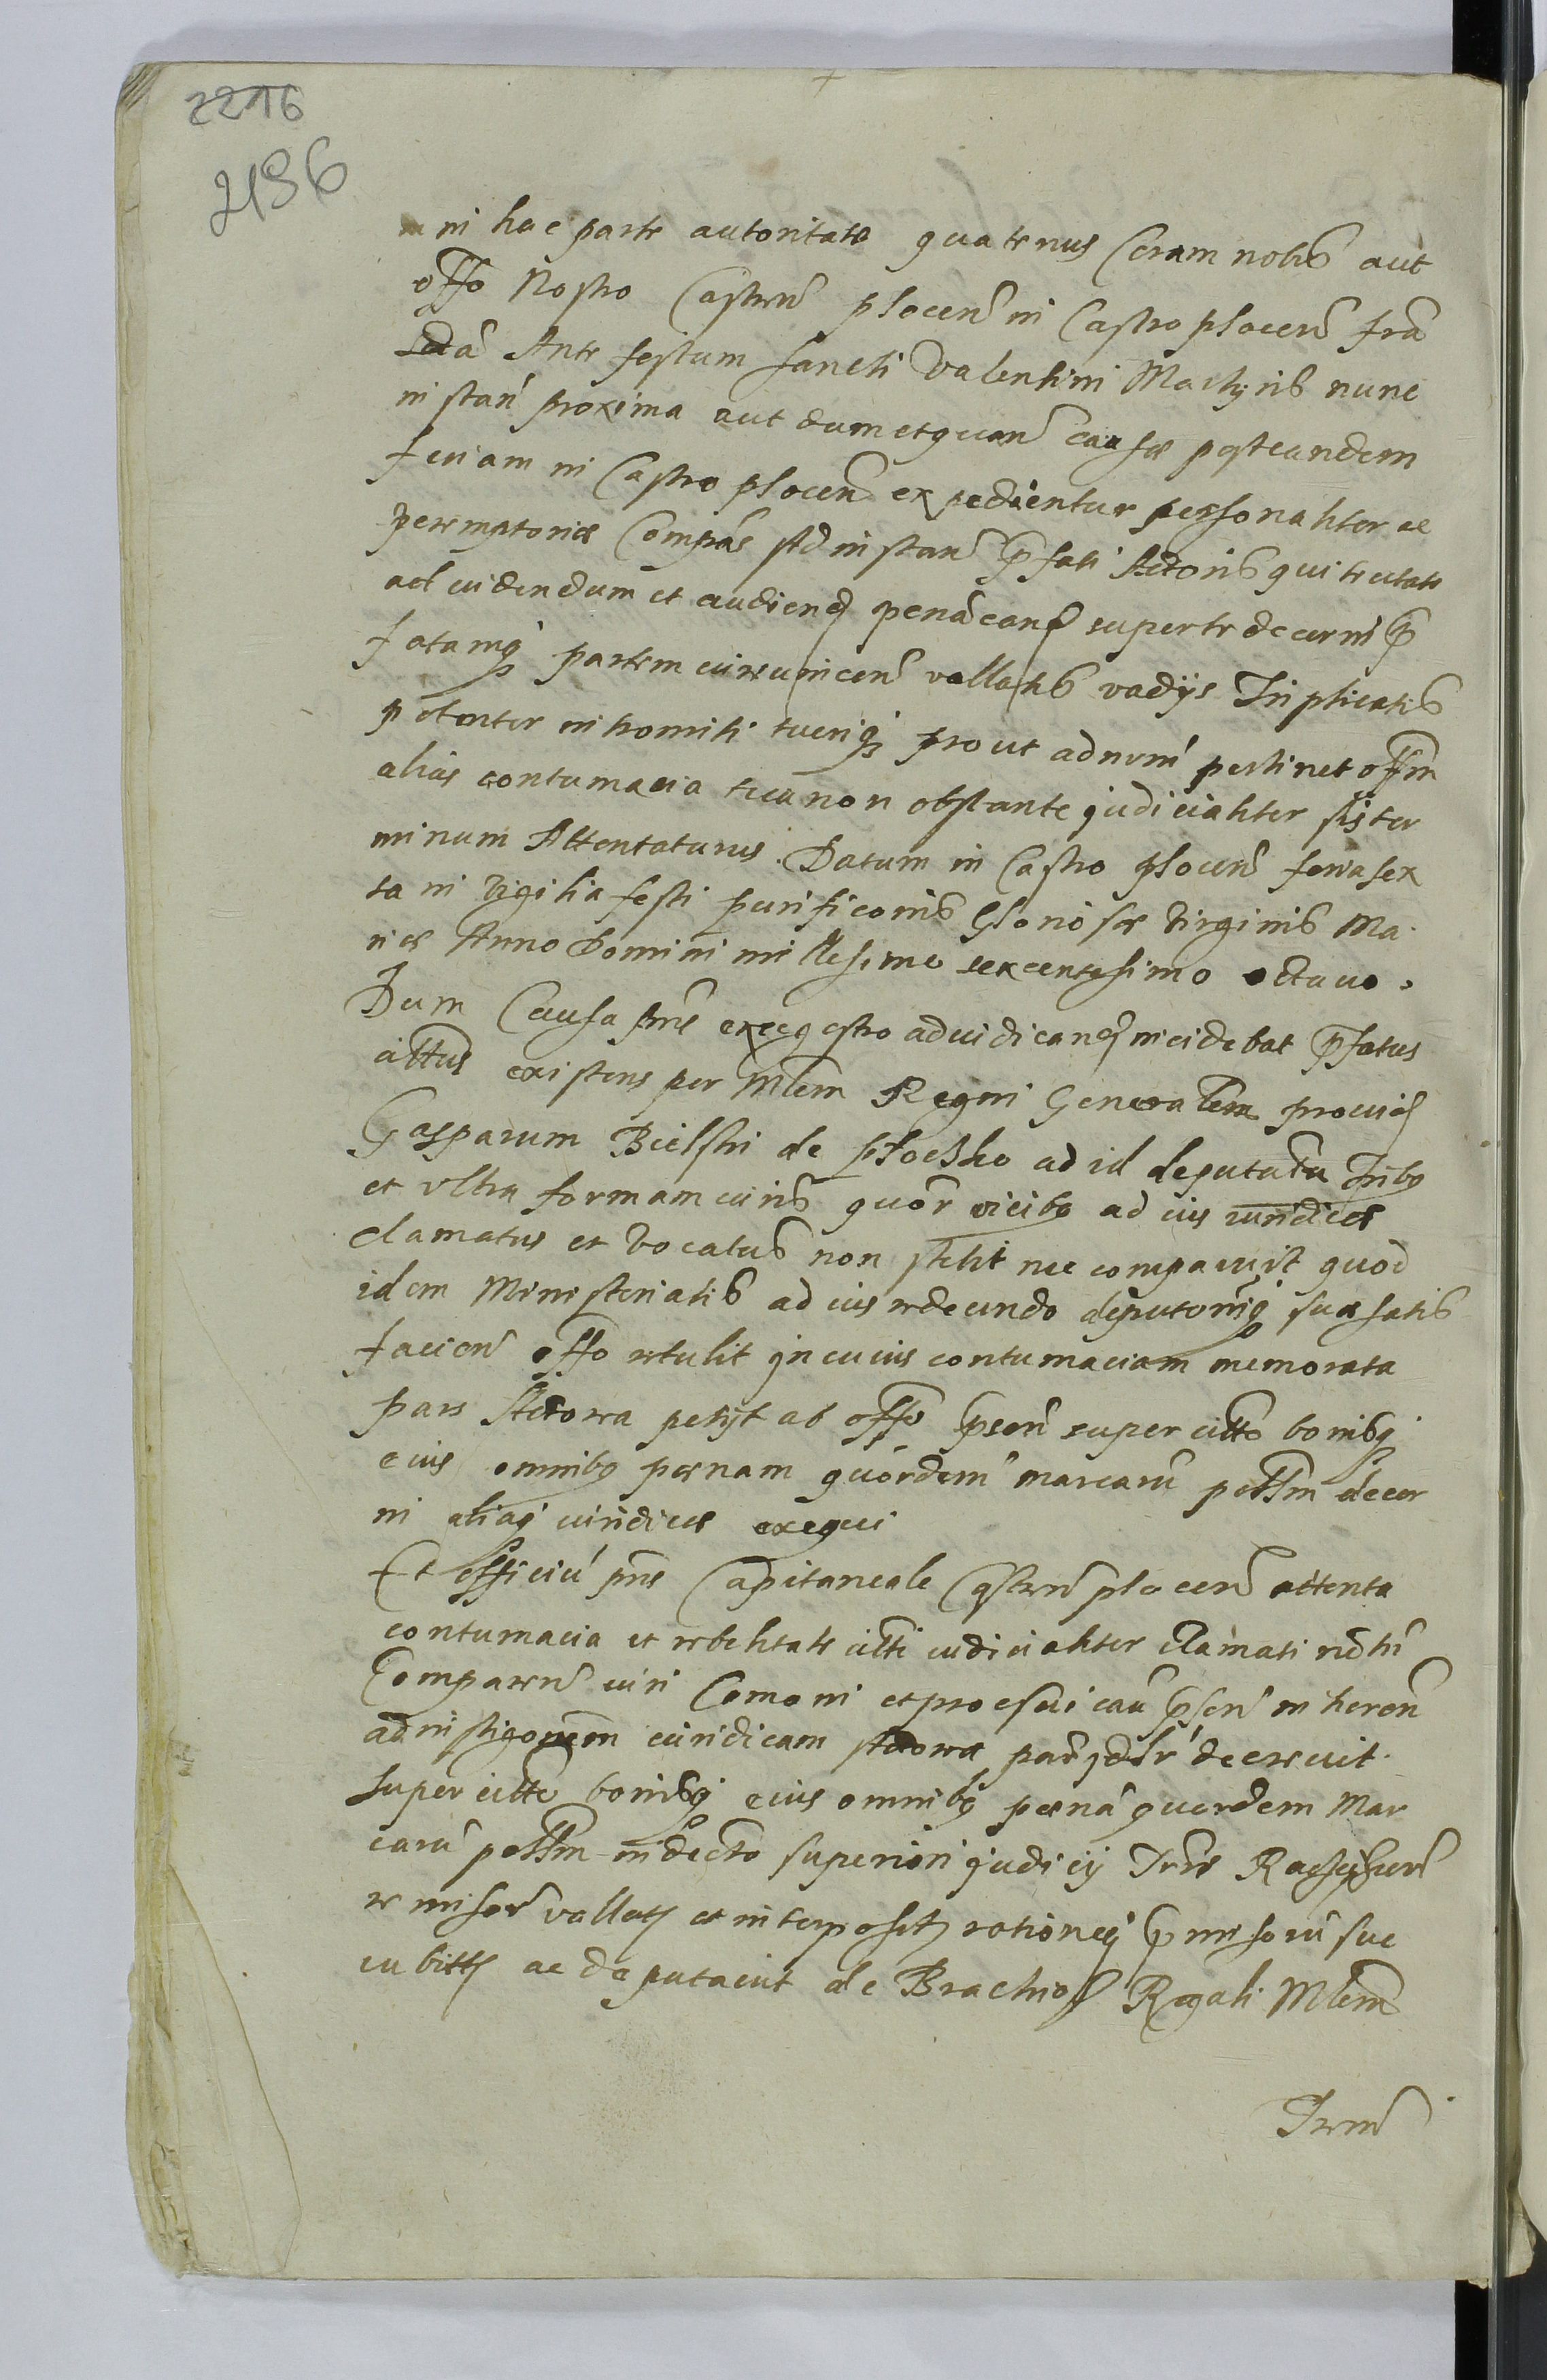 2216
2196
in hac parte autoritate quatenus Coram nobis aut
offo Nostro Castren̄ plocen̄ in Castro plocen̄ fr̄a
2dā Ante festum sancti Valentini Martyris nunc
instan̄ proxima aut dum et quan̄ causæ post eandem
feriam in Castro plocen̄ expedientur personaliter ac
peremptoriæ Compās Ad instan̄ p̄fati Actoris qui te citat
ad videndum et audien̄ penā can̄ super te decerni p̄
fatamq̄ partem vallatis vadijs Triplicatis
potenter intromitti tueriq̄ prout ad nrm̄ pertinet offm̄
alias contumacia tua non obstante judicialiter sis ter
minum Attentaturus. Datum in Castro plocen̄ feria sex
ta in Vigilia festi purificōnis Gloriosæ Virginis Ma
riæ Anno Domini millesimo sexcentesimo octauo.
Dum Causa pn̄s ex regestro ad iudicand̄ incidebat p̄fatus
cittus existens per Mlem̄ Regni Generalem prouid̄
Gasparum Bielski de płoczko ad id deputatū Tribq
et vltra formam iuris quor̄ vicibq ad ius iuridicæ
clamatus et Vocatus non stetit nec comparuit quod
idem Ministerialis ad ius redeundo deputōniq̄ suæ satis
facien̄ offo retulit in cuius contumaciam memorata
pars Actorea petijt ab offo p̄sen̄ super citto bonisq̄
eius omnibq pœnam quōrdem̄ marcarū pettm̄ decer
ni aliaq̄ iuridicæ exequi
Et officiū pn̄s Capitaneale Castren̄ plocen̄ attenta
contumacia et rebelitate citti iudicialiter clamati
Comparen̄ iuri Comoni et processui cau p̄sen̄ inheren̄
ad instigōnem iuridicam Actorea decreuit
super citto bonisq̄ eius omnibq pœnā quordem Mar
carū pettm̄ in decto superiori judicij Trr̄e
vallat̄ et interposit̄ rationeq̄ p̄missorū suc
cubitt̄ ac deputauit de Brachio Regali Mlem̄